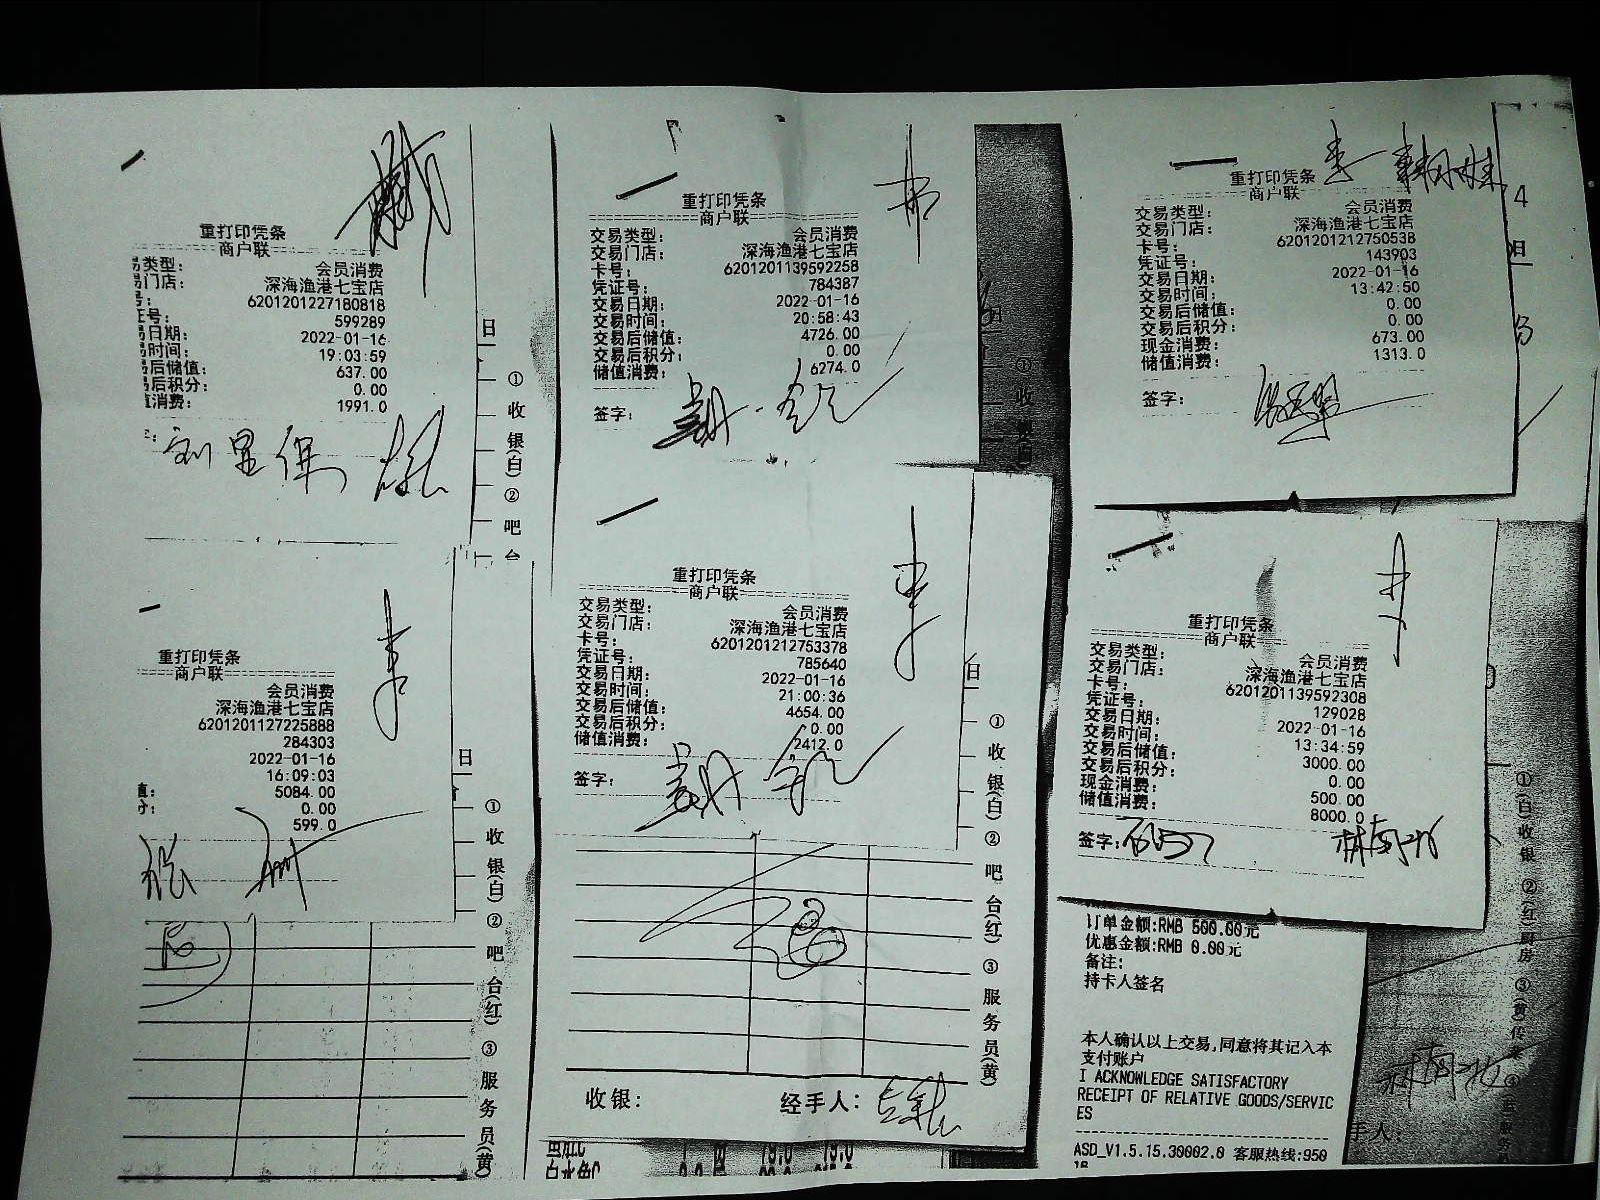 重打印凭条
商户联
易类型:
会员消费
易门店:
深海渔港七宝店
号:
6201201227180818
证号:
599289
易日期:
2022-01-16
易时间:
19:03:59
易后储值:
637.00
易后积分:
0.00
值消费:
1991.0
字:
刘显保
日
①收银(白)②吧台
重打印凭条
商户联
交易类型:
会员消费
交易门店:
深海渔港七宝店
卡号:
6201201139592258
凭证号:
784387
交易日期:
2022-01-16
交易时间:
20:58:43
交易后储值:
4726.00
交易后积分:
0.00
储值消费:
6274.0
签字:
①收银
重打印凭条
商户联
交易类型:
会员消费
交易门店:
深海渔港七宝店
卡号:
6201201212750538
凭证号:
143903
交易日期:
2022-01-16
交易时间:
13:42:50
交易后储值:
0.00
交易后积分:
0.00
现金消费:
673.00
储值消费:
1313.0
签字:
4
日
重打印凭条
商户联
会员消费
深海渔港七宝店
6201201127225888
284303
2022-01-16
16:09:03
值:
5084.00
分:
0.00
599.0
日
①收银(白)②吧台(红)③服务员(黄)
重打印凭条
商户联
交易类型:
会员消费
交易门店:
深海渔港七宝店
卡号:
6201201212753378
凭证号:
785640
交易日期:
2022-01-16
交易时间:
21:00:36
交易后储值:
4654.00
交易后积分:
0.00
储值消费:
2412.0
签字:
日
①收银(白)②吧台(红)③服务员(黄)
收银:
经手人:
重打印凭条
商户联
交易类型:
会员消费
交易门店:
深海渔港七宝店
卡号:
6201201139592308
凭证号:
129028
交易日期:
2022-01-16
交易时间:
13:34:59
交易后储值:
3000.00
交易后积分:
0.00
现金消费:
500.00
储值消费:
8000.0
签字:
林南北
订单金额:RMB 500.00元
优惠金额:RMB 0.00元
备注:
持卡人签名
本人确认以上交易,同意将其记入本
支付账户
I ACKNOWLEDGE SATISFACTORY
RECEIPT OF RELATIVE GOODS/SERVIC
ES
ASD_V1.5.15.30002.0 客服热线:950
手人: